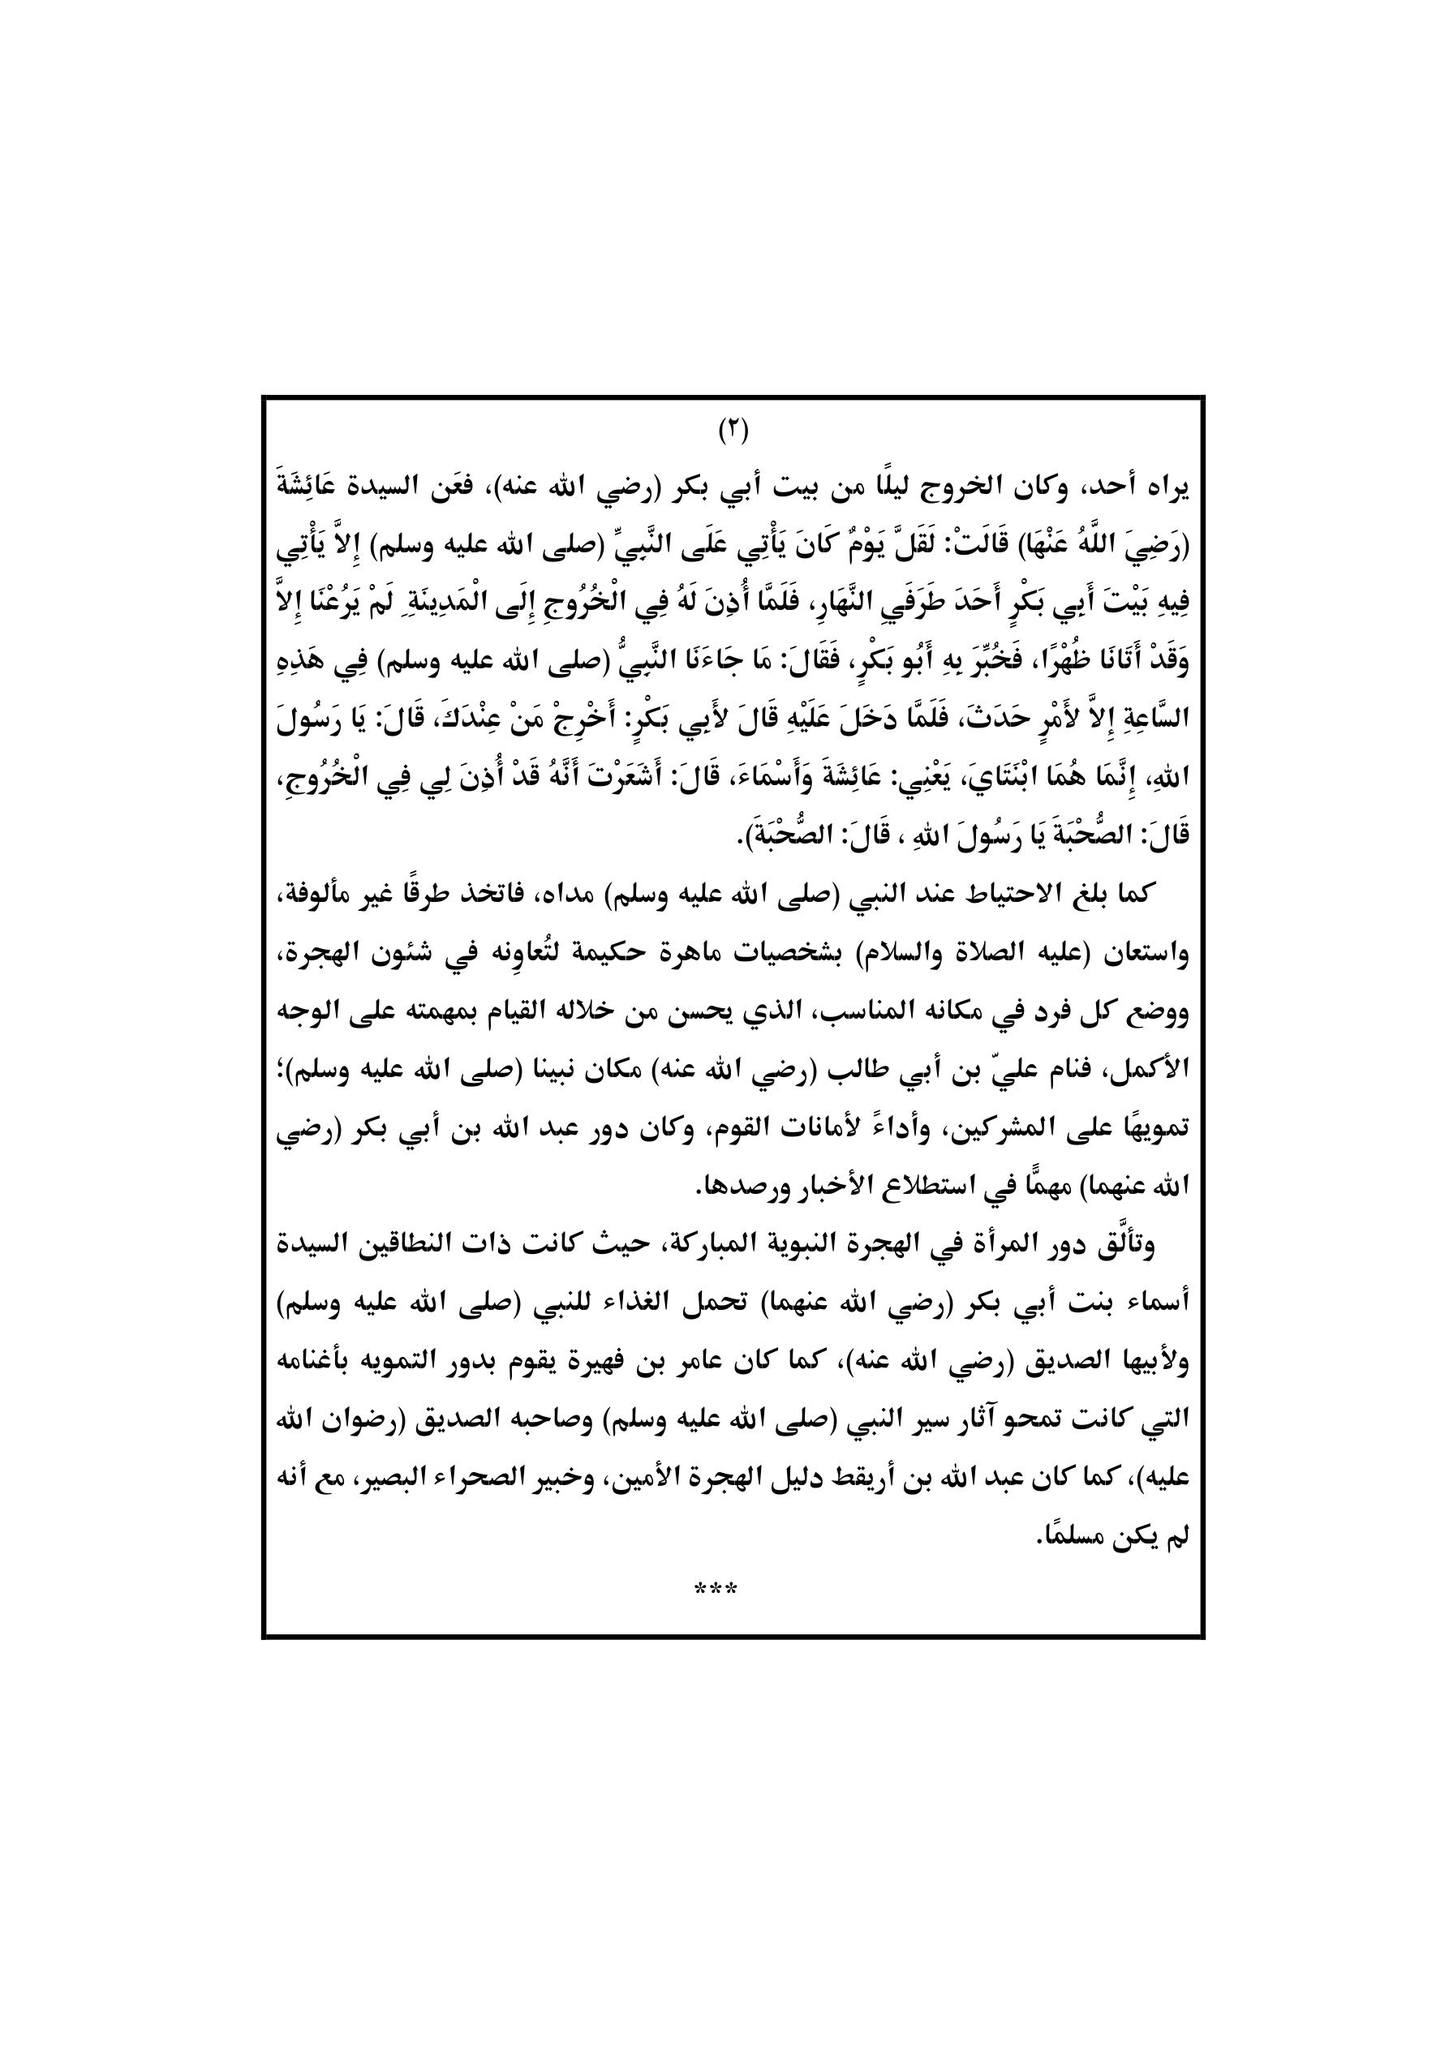 (٢)
يراه أحد، وكان الخروج ليلًا من بيت أبي بكر (رضي الله عنه)، فعَن السيدة عَائِشَةَ
(رَضِيَ اللَّهُ عَنْهَا) قَالَتْ: لَقَلَّ يَوْمٌ كَانَ يَأْتِي عَلَى النَّبِيِّ (صلى الله عليه وسلم) إِلاَّ يَأْتِي
فِيهِ بَيْتَ أَبِي بَكْرٍ أَحَدَ طَرَفَيِ النَّهَارِ، فَلَمَّا أُذِنَ لَهُ فِي الْخُرُوجِ إِلَى الْمَدِينَةِ لَمْ يَرُعْنَا إِلاَّ
وَقَدْ أَتَانَا ظُهْرًا، فَخُبِّرَ بِهِ أَبُو بَكْرٍ، فَقَالَ: مَا جَاءَنَا النَّبِيُّ (صلى الله عليه وسلم) فِي هَذِهِ
السَّاعِةِ إِلاَّ لأَمْرٍ حَدَثَ، فَلَمَّا دَخَلَ عَلَيْهِ قَالَ لأَبِي بَكْرٍ: أَخْرِجْ مَنْ عِنْدَكَ، قَالَ: يَا رَسُولَ
اللهِ، إِنَّمَا هُمَا ابْنَتَايَ، يَعْنِي: عَائِشَةَ وَأَسْمَاءَ، قَالَ: أَشَعَرْتَ أَنَّهُ قَدْ أُذِنَ لِي فِي الْخُرُوجِ،
قَالَ: الصُّحْبَةَ يَا رَسُولَ اللهِ ، قَالَ: الصُّحْبَةَ).
كما بلغ الاحتياط عند النبي (صلى الله عليه وسلم) مداه، فاتخذ طرقًا غير مألوفة،
واستعان (عليه الصلاة والسلام) بشخصيات ماهرة حكيمة لتُعاوِنه في شئون الهجرة،
ووضع كل فرد في مكانه المناسب، الذي يحسن من خلاله القيام بمهمته على الوجه
الأكمل، فنام عليّ بن أبي طالب (رضي الله عنه) مكان نبينا (صلى الله عليه وسلم)؛
تمويهًا على المشركين، وأداءً لأمانات القوم، وكان دور عبد الله بن أبي بكر (رضي
الله عنهما) مهمًّا في استطلاع الأخبار ورصدها.
وتألَّق دور المرأة في الهجرة النبوية المباركة، حيث كانت ذات النطاقين السيدة
أسماء بنت أبي بكر (رضي الله عنهما) تحمل الغذاء للنبي (صلى الله عليه وسلم)
ولأبيها الصديق (رضي الله عنه)، كما كان عامر بن فهيرة يقوم بدور التمويه بأغنامه
التي كانت تمحو آثار سير النبي (صلى الله عليه وسلم) وصاحبه الصديق (رضوان الله
عليه)، كما كان عبد الله بن أريقط دليل الهجرة الأمين، وخبير الصحراء البصير، مع أنه
لم يكن مسلمًا.
***